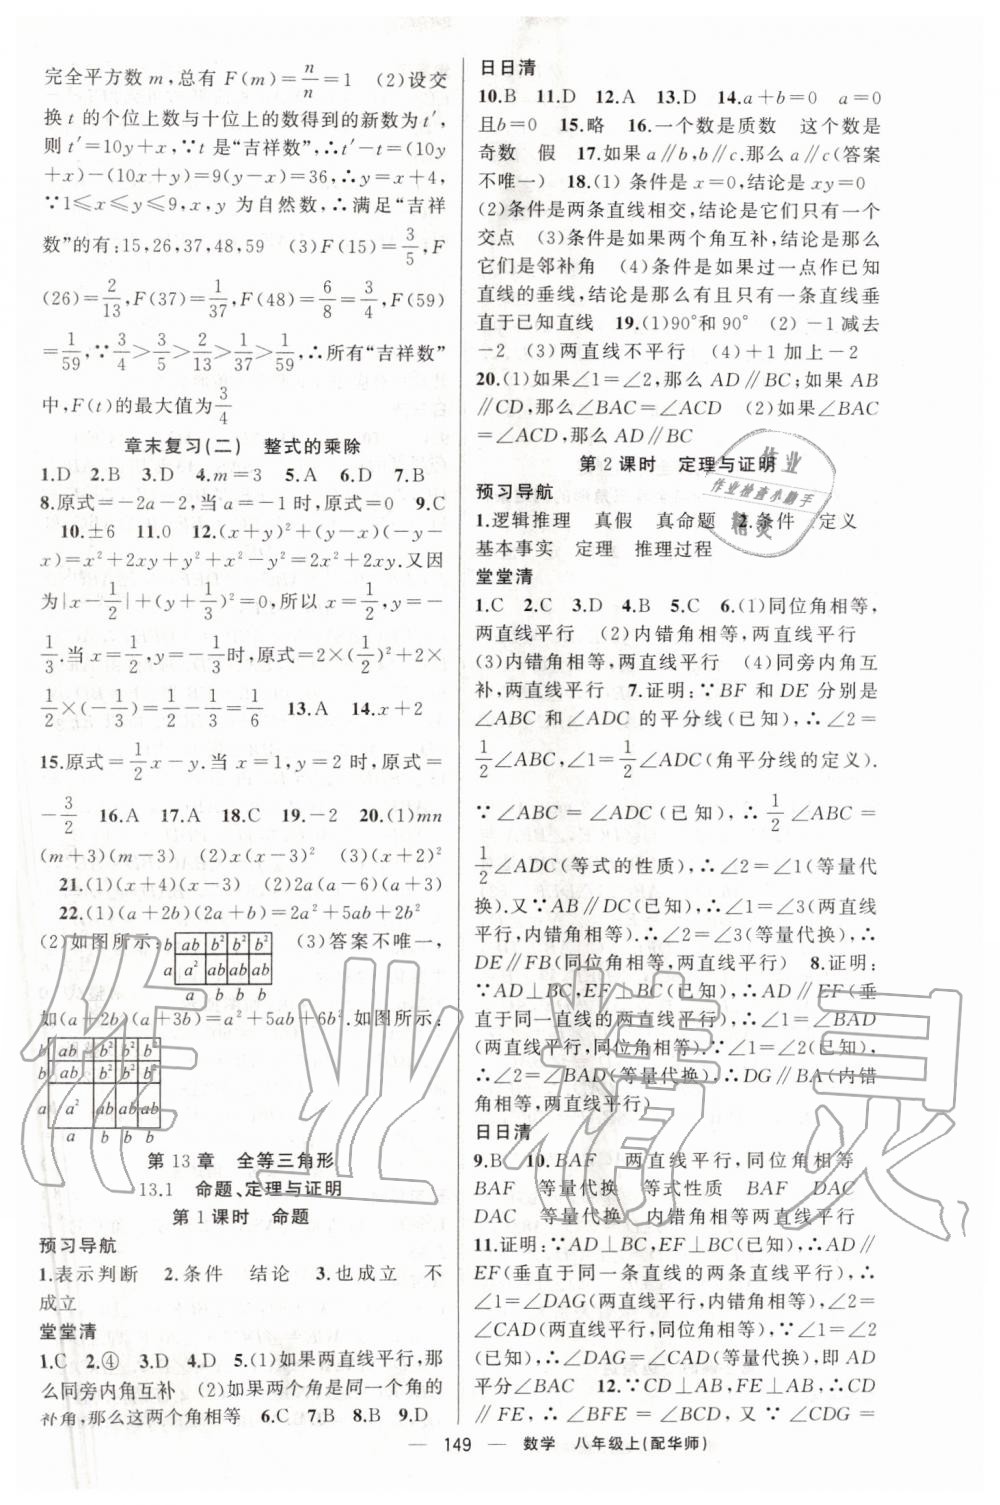 完全平方数 m,总有 F(m)=n/n=1 (2)设交
换 t 的个位上数与十位上的数得到的新数为 t′,
则 t′=10y+x,∵t 是“吉祥数”,∴t′-t=(10y
+x)-(10x+y)=9(y-x)=36,∴y=x+4,
∵1≤x≤y≤9,x,y 为自然数,∴满足“吉祥
数”的有:15,26,37,48,59 (3)F(15)=3/5,F
(26)=2/13,F(37)=1/37,F(48)=6/8=3/4,F(59)
=1/59,∵3/4>3/5>2/13>1/37>1/59,∴所有“吉祥数”
中,F(t)的最大值为3/4
章末复习(二) 整式的乘除
1.D 2.B 3.D 4.m=3 5.A 6.D 7.B
8.原式=-2a-2,当 a=-1 时,原式=0 9.C
10.±6 11.0 12.(x+y)²+(x-y)(-y-
x)=x²+2xy+y²+x²-y²=2x²+2xy.又因
为|x-1/2|+(y+1/3)²=0,所以 x=1/2,y=-
1/3.当 x=1/2,y=-1/3时,原式=2×(1/2)²+2×
1/2×(-1/3)=1/2-1/3=1/6 13.A 14.x+2
15.原式=1/2x-y.当 x=1,y=2 时,原式=
-3/2 16.A 17.A 18.C 19.-2 20.(1)mn
(m+3)(m-3) (2)x(x-3)² (3)(x+2)²
21.(1)(x+4)(x-3) (2)2a(a-6)(a+3)
22.(1)(a+2b)(2a+b)=2a²+5ab+2b²
(2)如图所示: (3)答案不唯一,
b ab b² b² b²
a a² ab ab ab
a b b b
如(a+2b)(a+3b)=a²+5ab+6b².如图所示:
b ab b² b² b²
b ab b² b² b²
a a² ab ab ab
a b b b
第 13 章 全等三角形
13.1 命题、定理与证明
第 1 课时 命题
预习导航
1.表示判断 2.条件 结论 3.也成立 不
成立
堂堂清
1.C 2.④ 3.D 4.D 5.(1)如果两直线平行,那
么同旁内角互补 (2)如果两个角是同一个角的
补角,那么这两个角相等 6.C 7.B 8.B 9.D
日日清
10.B 11.D 12.A 13.D 14.a+b=0 a=0
且b=0 15.略 16.一个数是质数 这个数是
奇数 假 17.如果 a∥b,b∥c.那么 a∥c(答案
不唯一) 18.(1) 条件是 x=0,结论是 xy=0
(2)条件是两条直线相交,结论是它们只有一个
交点 (3)条件是如果两个角互补,结论是那么
它们是邻补角 (4)条件是如果过一点作已知
直线的垂线,结论是那么有且只有一条直线垂
直于已知直线 19.(1)90°和 90° (2)-1 减去
-2 (3)两直线不平行 (4)+1 加上-2
20.(1)如果∠1=∠2,那么 AD∥BC;如果 AB
∥CD,那么∠BAC=∠ACD (2)如果∠BAC
=∠ACD,那么 AD∥BC
第 2 课时 定理与证明
预习导航
1.逻辑推理 真假 真命题 2.条件 定义
基本事实 定理 推理过程
堂堂清
1.C 2.C 3.D 4.B 5.C 6.(1)同位角相等,
两直线平行 (2)内错角相等,两直线平行
(3)内错角相等,两直线平行 (4)同旁内角互
补,两直线平行 7.证明:∵BF 和 DE 分别是
∠ABC 和∠ADC 的平分线(已知),∴∠2=
1/2∠ABC,∠1=1/2∠ADC(角平分线的定义).
∵∠ABC=∠ADC(已知),∴1/2∠ABC=
1/2∠ADC(等式的性质),∴∠2=∠1(等量代
换).又∵AB∥DC(已知),∴∠1=∠3(两直线
平行,内错角相等).∴∠2=∠3(等量代换),∴
DE∥FB(同位角相等,两直线平行) 8.证明:
∵AD⊥BC,EF⊥BC(已知),∴AD∥EF(垂
直于同一直线的两直线平行),∴∠1=∠BAD
(两直线平行,同位角相等).∵∠1=∠2(已知),
∴∠2=∠BAD(等量代换),∴DG∥BA(内错
角相等,两直线平行)
日日清
9.B 10.BAF 两直线平行,同位角相等
BAF 等量代换 等式性质 BAF DAC
DAC 等量代换 内错角相等两直线平行
11.证明:∵AD⊥BC,EF⊥BC(已知),∴AD∥
EF(垂直于同一条直线的两条直线平行),∴
∠1=∠DAG(两直线平行,内错角相等),∠2=
∠CAD(两直线平行,同位角相等),∵∠1=∠2
(已知),∴∠DAG=∠CAD(等量代换),即 AD
平分∠BAC 12.∵CD⊥AB,FE⊥AB,∴CD
∥FE,∴∠BFE=∠BCD,又∵∠CDG=
— 149 — 数学 八年级上(配华师)
作业
作业检查小助手
精灵
作业精灵